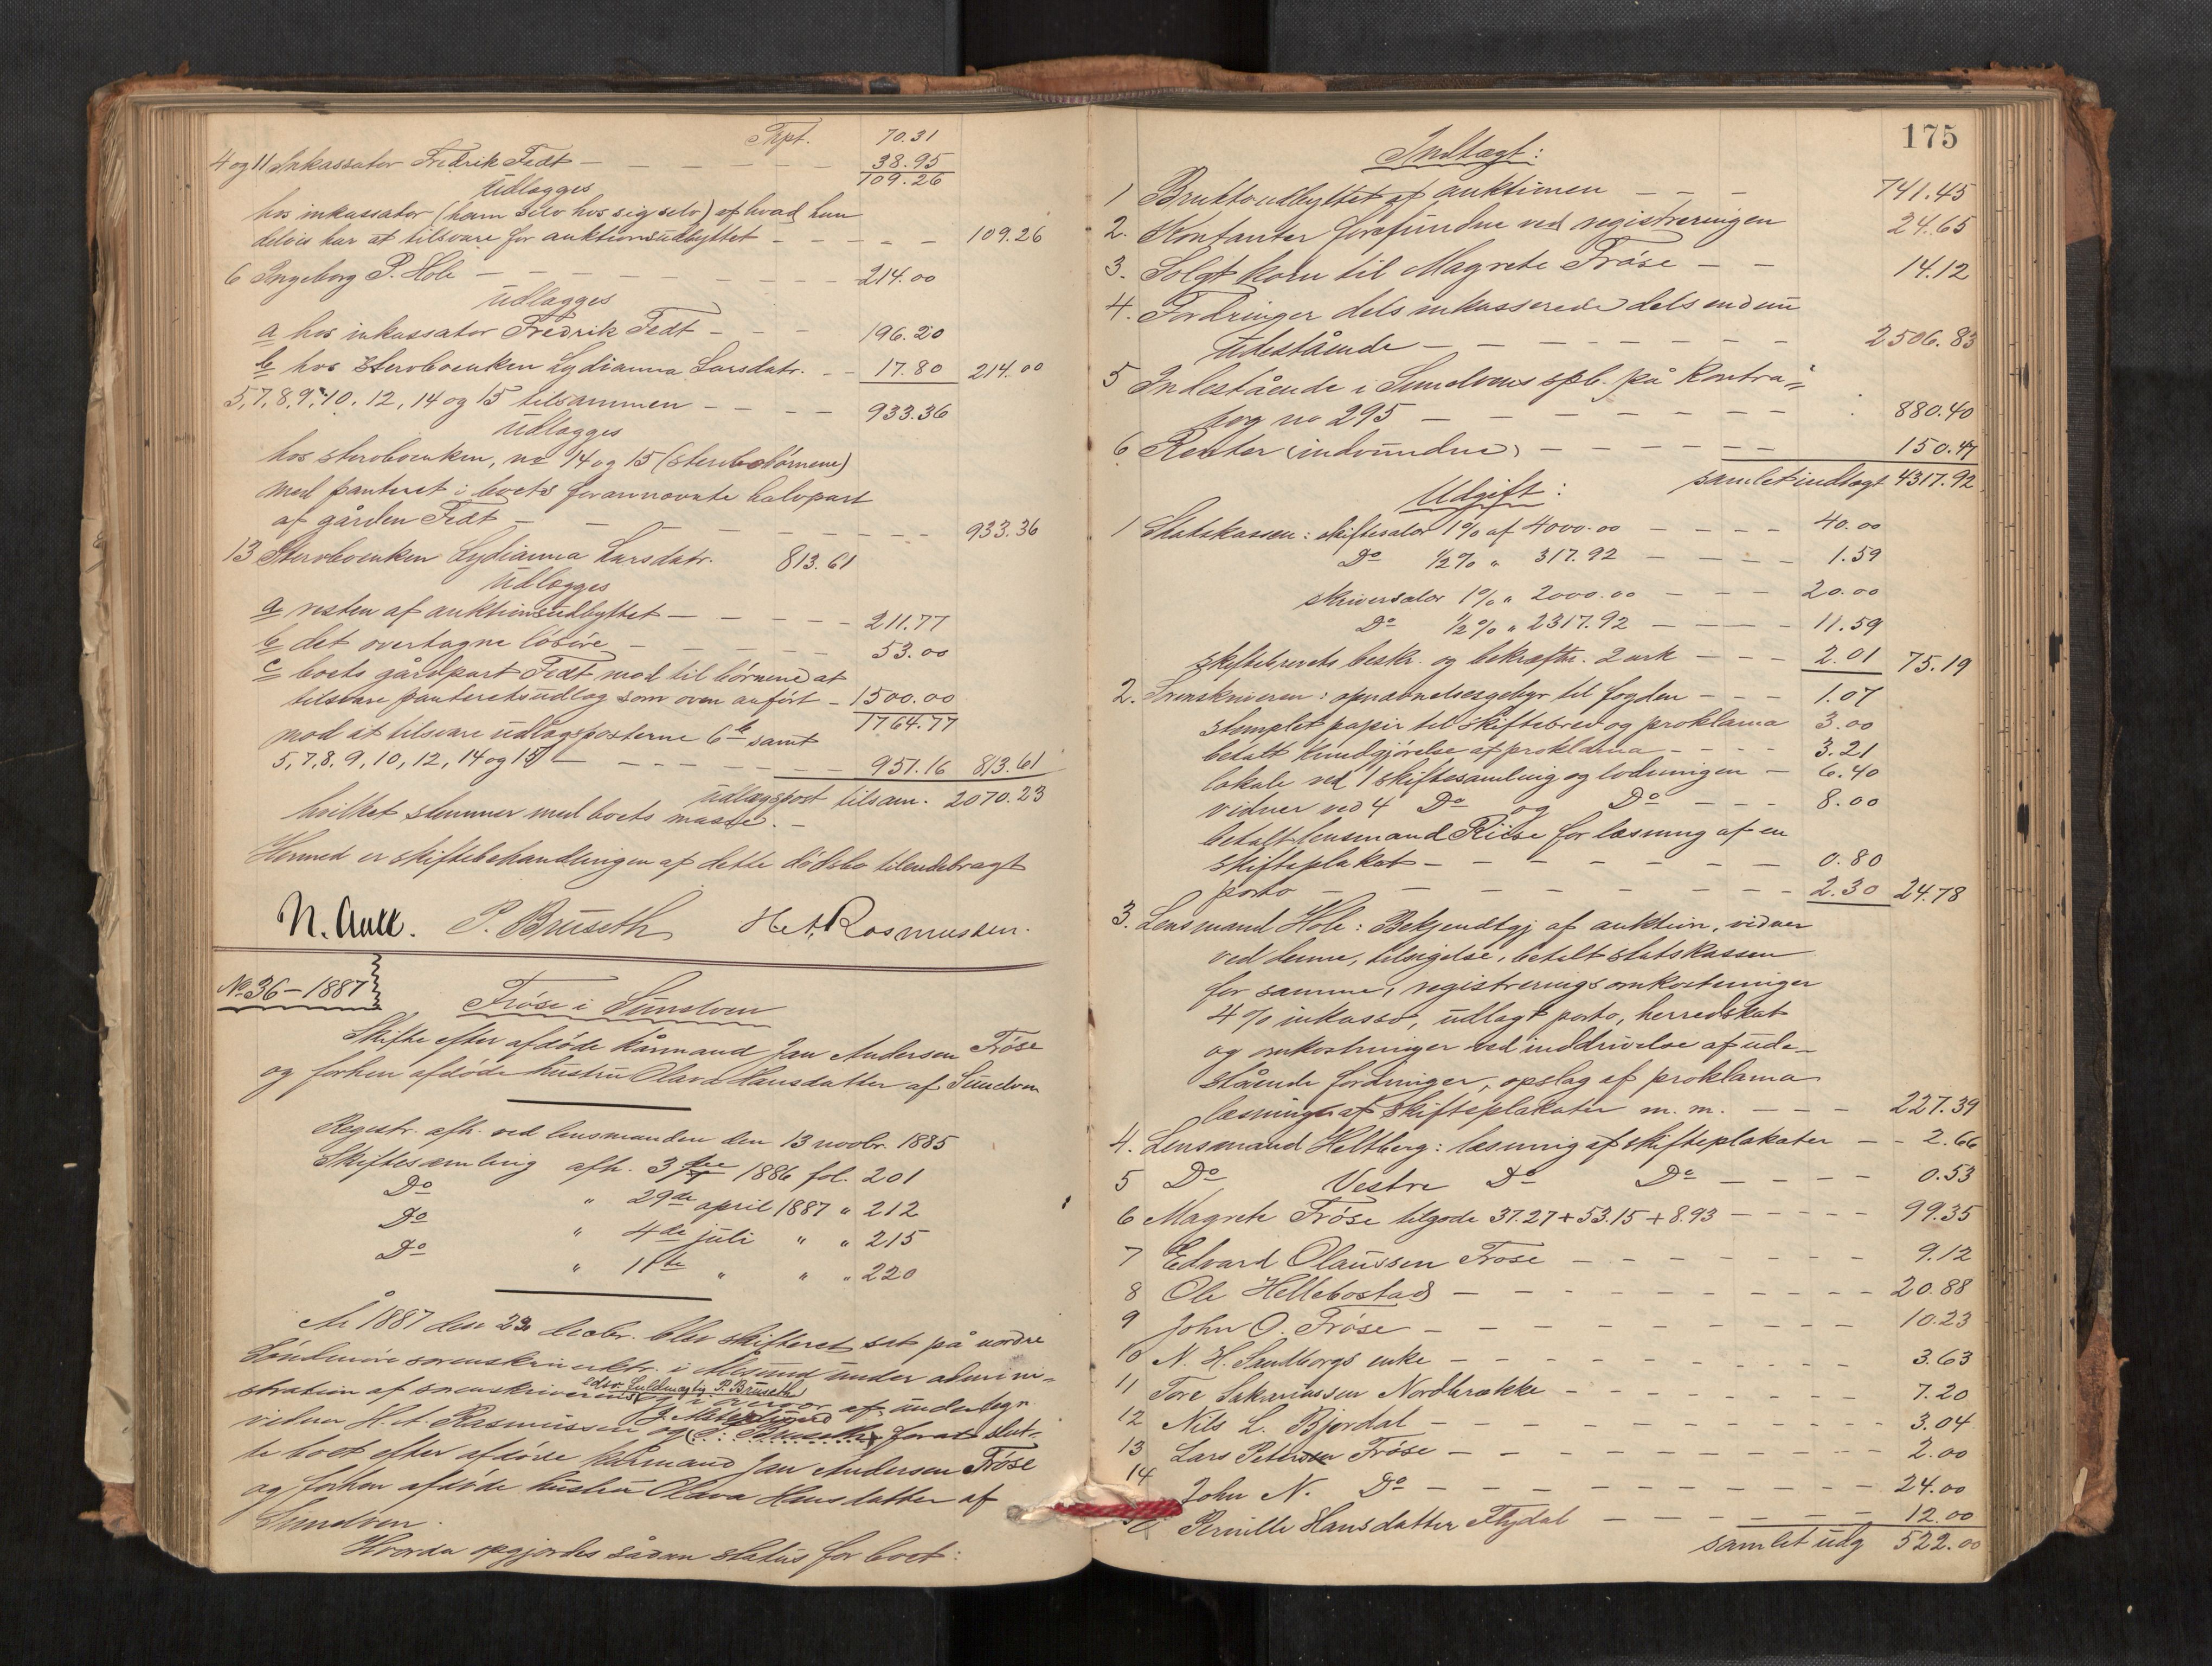 Trpt. 70.31
4 og 11 Inkassator Fredrik Fedt — — — — 38.95
109.26
Udlægges
hos inkassator (ham selv hos sig selv) af hvad han
delvis har at tilsvare for auktionsudbyttet — — — — 109.26
6 Ingeborg P. Hole — — — — 214.00
Udlægges
a hos inkassator Fredrik Fedt — — — 196.20
b hos Stervboenken Lydianna Larsdatr. — — 17.80 214.00
5, 7, 8, 9, 10, 12, 14 og 15 tilsammen — — — — 933.36
Udlægges
hos stervboenken, no 14 og 15 (sterbobörnene)
med panteret i boets forannævnte halvpart
af gården Fedt — — — — 933.36
13 Stervboenken Lydianna Larsdatr. 813.61
Udlægges
a resten af auktionsudbyttet — — — — 211.77
b det overtagne lösöre — — — — 53.00
c boets gårdpart Fedt mod til börnene at
tilsvare panteretsudlæg som oven anfört — 1500.00
1764.77
mod at tilsvare udlægsposterne 6 b samt
5, 7, 8, 9, 10, 12, 14 og 15 — — — — 951.16 813.61
udlægspost tilsam. 2070.23
hvilket stemmer med boets masse. —
Hermed er skiftebehandlingen af dette dödsbo tilendebragt
N. Aall. P. Bruseth H. A. Rasmussen.
No 36 – 1887
Fröse i Sunelven
Skifte efter afdöde kårmand Jan Andersen Fröse
og forhen afdöde hustru Olava Hansdatter af Sunelven
Registr. afh. ved lensmanden den 13 novbr. 1885
Skiftesamling afh. 3 1886 fol. 201
Do " 29de april 1887 " 212
Do " 4de juli " " 215
Do " 11te " " " 220
År 1887 den 23 decbr. blev skifteret sat på nordre
Söndmöre sorenskriverktr. i Ålesund under admini-
stration af sorenskriverens edsv. fuldmægtig P. Bruseth af undertegn.
vidner H. A. Rasmussen og P. Bruseth for at slut-
te boet efter afdöde kårmand Jan Andersen Fröse
og forhen afdöde hustru Olava Hansdatter af
Sunelven.
Hvorda opgjordes sådan status for boet:
175
Indtægt:
1 Bruttoudbyttet af auktionen — — — 741.45
2. Kontanter forefundne ved registreringen 24.65
3. Solgt korn til Magrete Fröse — — 14.12
4. Fordringer dels inkasserede dels endnu
udestående — — — — — — — 2506.83
5 Indestående i Sunelvens spb. på Kontra-
bog no 295 — — — — — — — 880.40
6 Renter (indvundne) — — — — — — 150.47
samlet indtægt 4317.92
Udgift:
1 Statskassen: skiftesalær 1% af 4000.00 — — — — 40.00
Do ½% " 317.92 — — — — 1.59
skriversalær 1% " 2000.00 — — — — 20.00
Do ½% " 2317.92 — — — — 11.59
skiftebrevets beskr. og bekræftn. 2 ark — — — 2.01 75.19
2. Sorenskriveren: opnævnelsesgebyr til fogden — — — 1.07
stemplet papir til skiftebrev og proklama 3.00
betalt kundgjörelse af proklama — — — — 3.21
lokale ved 1 skiftesamling og lodningen — 6.40
vidner ved 4 Do og Do — — — 8.00
betalt lensmand Riise for læsning af en
skifteplakat — — — — — — — 0.80
porto — — — — — — — — 2.30 24.78
3. Lensmand Hole: Bekjendtgj af auktion, vidner
ved denne, tilsigelse, betalt statskassen
for samme, registreringsomkostninger
4% inkasso, udlagt porto, herredskat
og omkostninger ved inddrivelse af ude-
stående fordringer, opslag af proklama
læsning af skifteplakater m. m. — — — 227.39
4. Lensmand Heltberg: læsning af skifteplakater — — 2.66
5 Do Vestre Do Do — — — — 0.53
6 Magrete Fröse tilgode 37.27 + 53.15 + 8.93 — — — — — 99.35
7 Edvard Olaussen Fröse — — — — — — 9.12
8 Ole Hellebostad — — — — — — — — 20.88
9 John O. Fröse — — — — — — — — 10.23
10 N. H. Sandborgs enke — — — — — — — 3.63
11 Tore Sakariassen Nordbrække — — — — — — 7.20
12 Nils L. Bjordal — — — — — — — — 3.04
13 Lars Petersen Fröse — — — — — — — — 2.00
14 John N. Do — — — — — — — — 24.00
Pernille Hansdatter Flydal — — — — — — 12.00
samlet udg 522.00